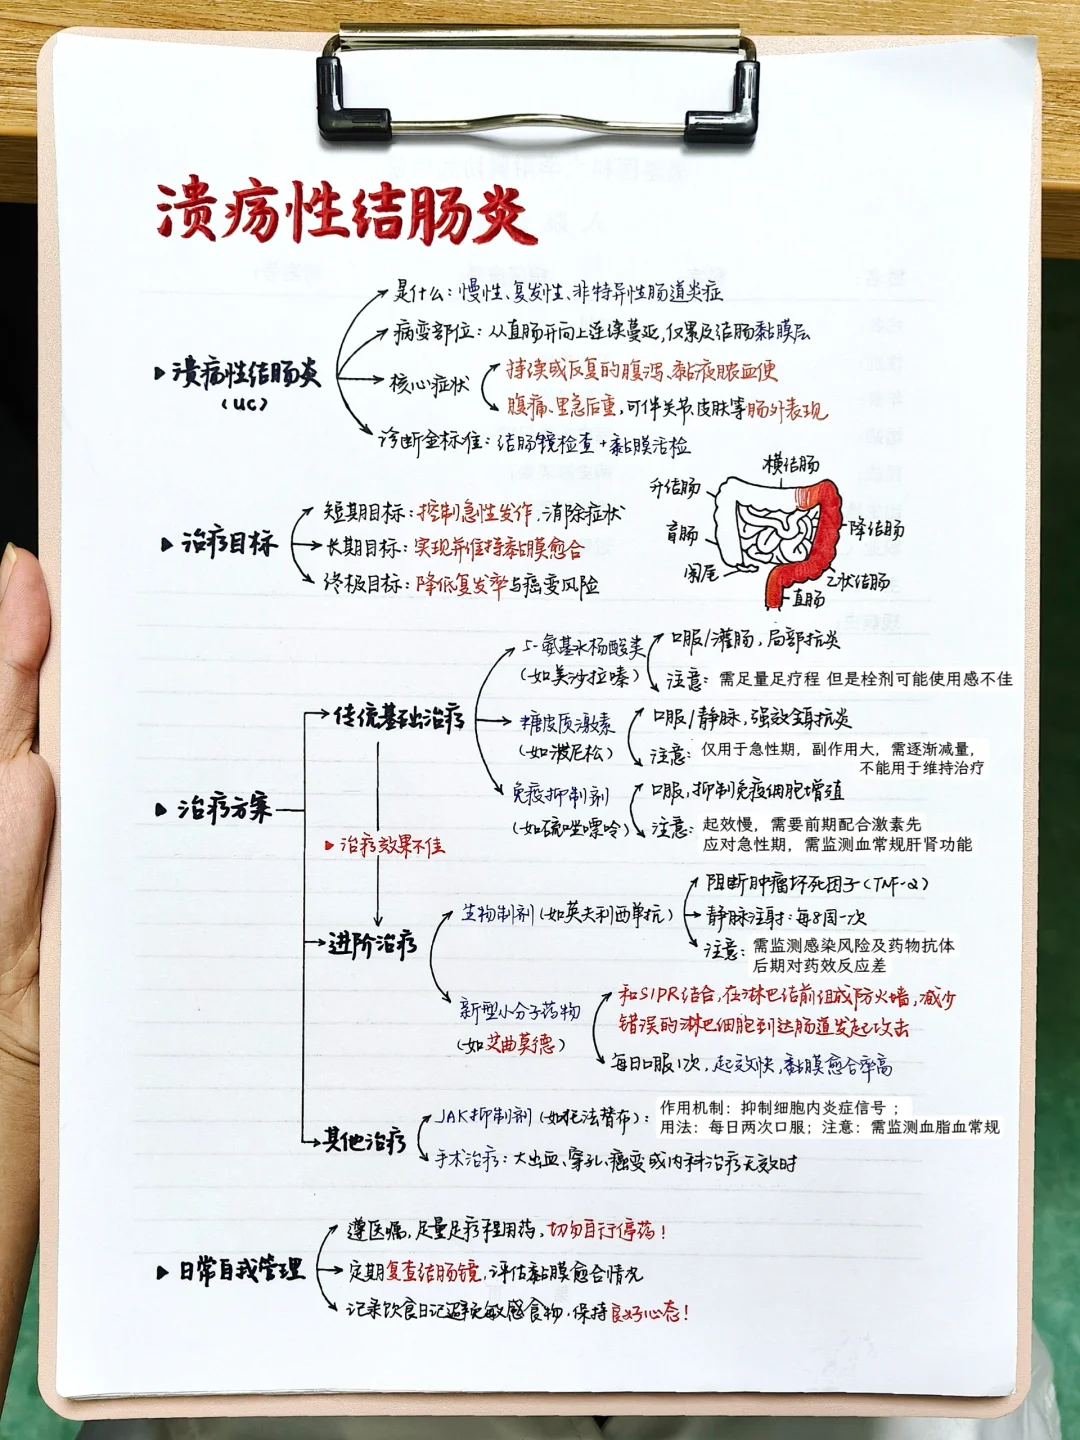 溃疡性结肠炎
▶ 溃疡性结肠炎
(UC)
是什么：慢性、复发性、非特异性肠道炎症
病变部位：从直肠开向上连续蔓延，仅累及结肠黏膜层
核心症状
持续或反复的腹泻、黏液脓血便
腹痛、里急后重，可伴关节皮肤等肠外表现
诊断金标准：结肠镜检查+黏膜活检
▶ 治疗目标
短期目标：控制急性发作，消除症状
长期目标：实现并维持黏膜愈合
终极目标：降低复发率与癌变风险
横结肠
升结肠
盲肠
阑尾
降结肠
乙状结肠
直肠
▶ 治疗方案
传统基础治疗
5-氨基水杨酸类
(如美沙拉嗪)
口服/灌肠，局部抗炎
注意：需足量足疗程 但是栓剂可能使用感不佳
糖皮质激素
(如泼尼松)
口服/静脉，强效全身抗炎
注意：仅用于急性期，副作用大，需逐渐减量，
不能用于维持治疗
免疫抑制剂
(如硫唑嘌呤)
口服，抑制免疫细胞增殖
注意：起效慢，需要前期配合激素先
应对急性期，需监测血常规肝肾功能
▶ 治疗效果不佳
进阶治疗
生物制剂(如英夫利西单抗)
阻断肿瘤坏死因子(TNF-α)
静脉注射：每8周一次
注意：需监测感染风险及药物抗体
后期对药效反应差
新型小分子药物
(如艾曲莫德)
和S1PR结合，在淋巴结前组成防火墙，减少
错误的淋巴细胞到达肠道发起攻击
每日口服1次，起效快，黏膜愈合率高
其他治疗
JAK抑制剂(如托法替布)：作用机制：抑制细胞内炎症信号；
用法：每日两次口服；注意：需监测血脂血常规
手术治疗：大出血、穿孔、癌变或内科治疗无效时
▶ 日常自我管理
遵医嘱，足量足疗程用药，切勿自行停药！
定期复查结肠镜，评估黏膜愈合情况
记录饮食日记避免敏感食物，保持良好心态！